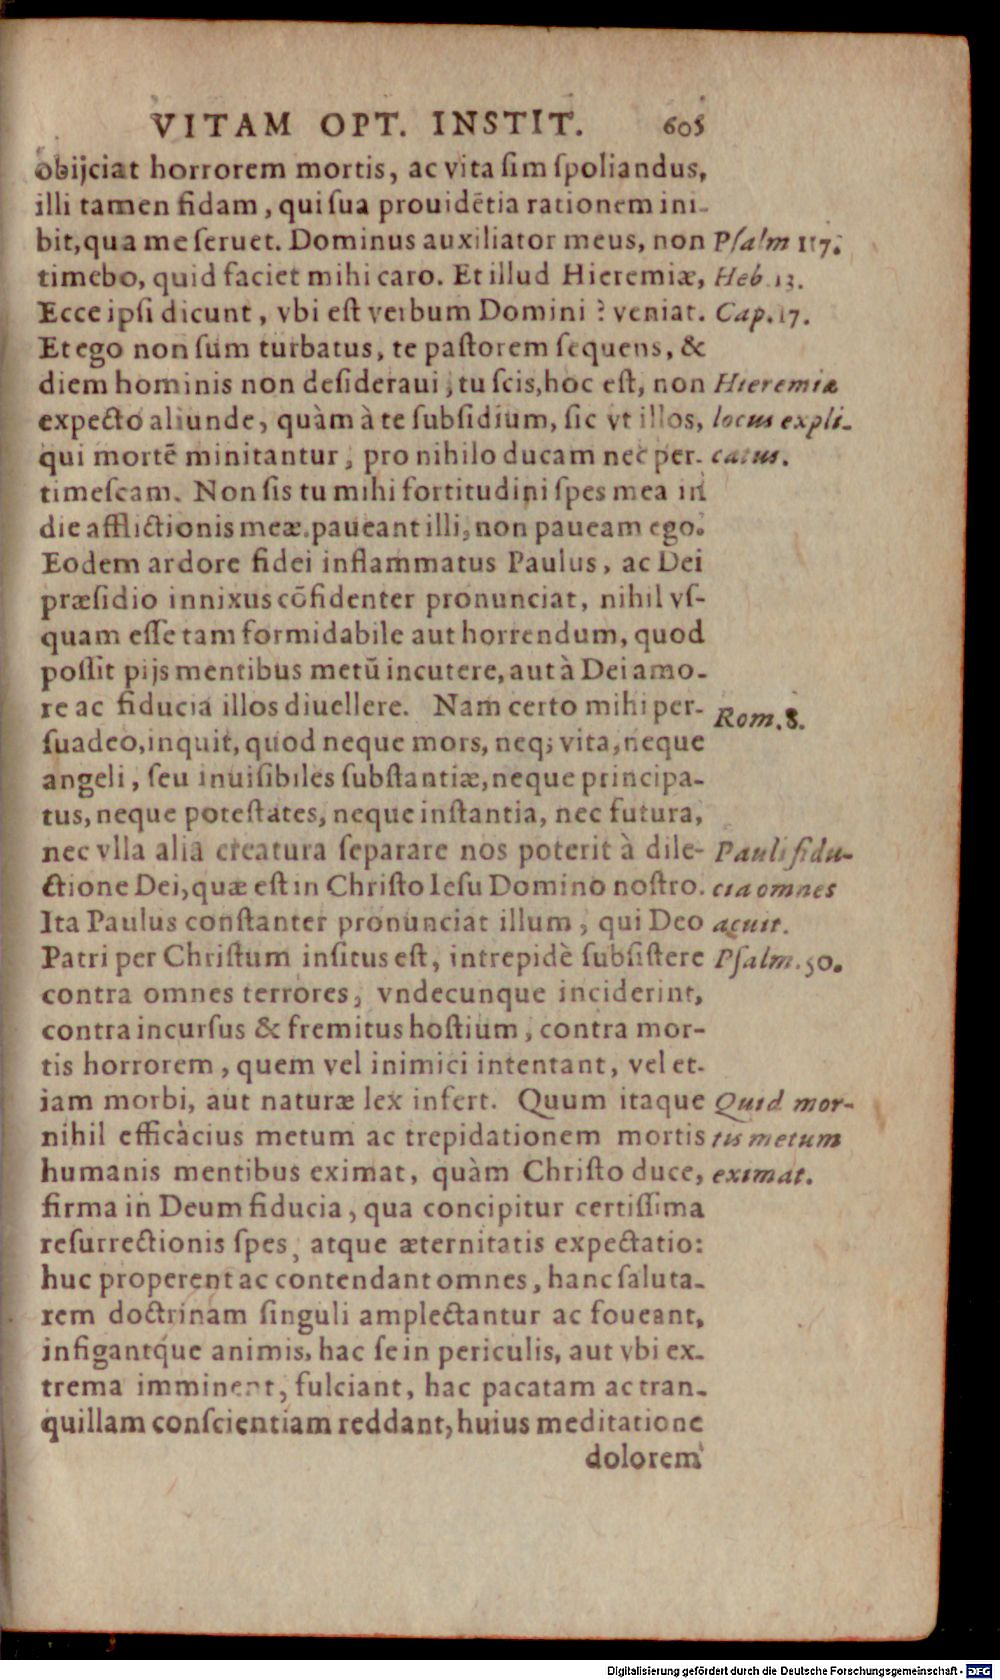 VITAM OPT. INSTIT. 605
obijciat horrorem mortis, ac vita sim spoliandus,
illi tamen fidam, qui sua prouidētia rationem ini-
bit, qua me seruet. Dominus auxiliator meus, non Psalm 117.
timebo, quid faciet mihi caro. Et illud Hieremiæ, Heb. 13.
Ecce ipsi dicunt, vbi est verbum Domini? veniat. Cap. 17.
Et ego non sum turbatus, te pastorem sequens, &
diem hominis non desideraui, tu scis, hoc est, non Hieremiæ
expecto aliunde, quàm à te subsidium, sic vt illos, locus expli-
qui mortē minitantur, pro nihilo ducam nec per- catus.
timescam. Non sis tu mihi fortitudini spes mea in
die afflictionis meæ. paueant illi, non paueam ego.
Eodem ardore fidei inflammatus Paulus, ac Dei
præsidio innixus cōfidenter pronunciat, nihil vs-
quam esse tam formidabile aut horrendum, quod
possit pijs mentibus metū incutere, aut à Dei amo-
re ac fiducia illos diuellere. Nam certo mihi per- Rom. 8.
suadeo, inquit, quod neque mors, neq; vita, neque
angeli, seu inuisibiles substantiæ, neque principa-
tus, neque potestates, neque instantia, nec futura,
nec vlla alia creatura separare nos poterit à dile- Pauli fidu-
ctione Dei, quæ est in Christo Iesu Domino nostro. cia omnes
Ita Paulus constanter pronunciat illum, qui Deo acuit.
Patri per Christum insitus est, intrepidè subsistere Psalm. 50.
contra omnes terrores, vndecunque inciderint,
contra incursus & fremitus hostium, contra mor-
tis horrorem, quem vel inimici intentant, vel et-
iam morbi, aut naturæ lex infert. Quum itaque Quid mor-
nihil efficàcius metum ac trepidationem mortis tis metum
humanis mentibus eximat, quàm Christo duce, eximat.
firma in Deum fiducia, qua concipitur certissima
resurrectionis spes, atque æternitatis expectatio:
huc properent ac contendant omnes, hanc saluta-
rem doctrinam singuli amplectantur ac foueant,
infigantq́ue animis, hac se in periculis, aut vbi ex-
trema imminent, fulciant, hac pacatam ac tran-
quillam conscientiam reddant, huius meditatione
dolorem
Digitalisierung gefördert durch die Deutsche Forschungsgemeinschaft - DFG